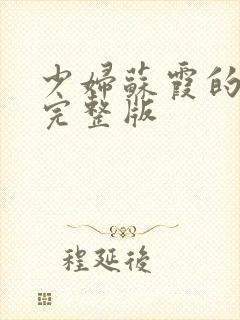 少婦蘇霞的
完整版
程延後